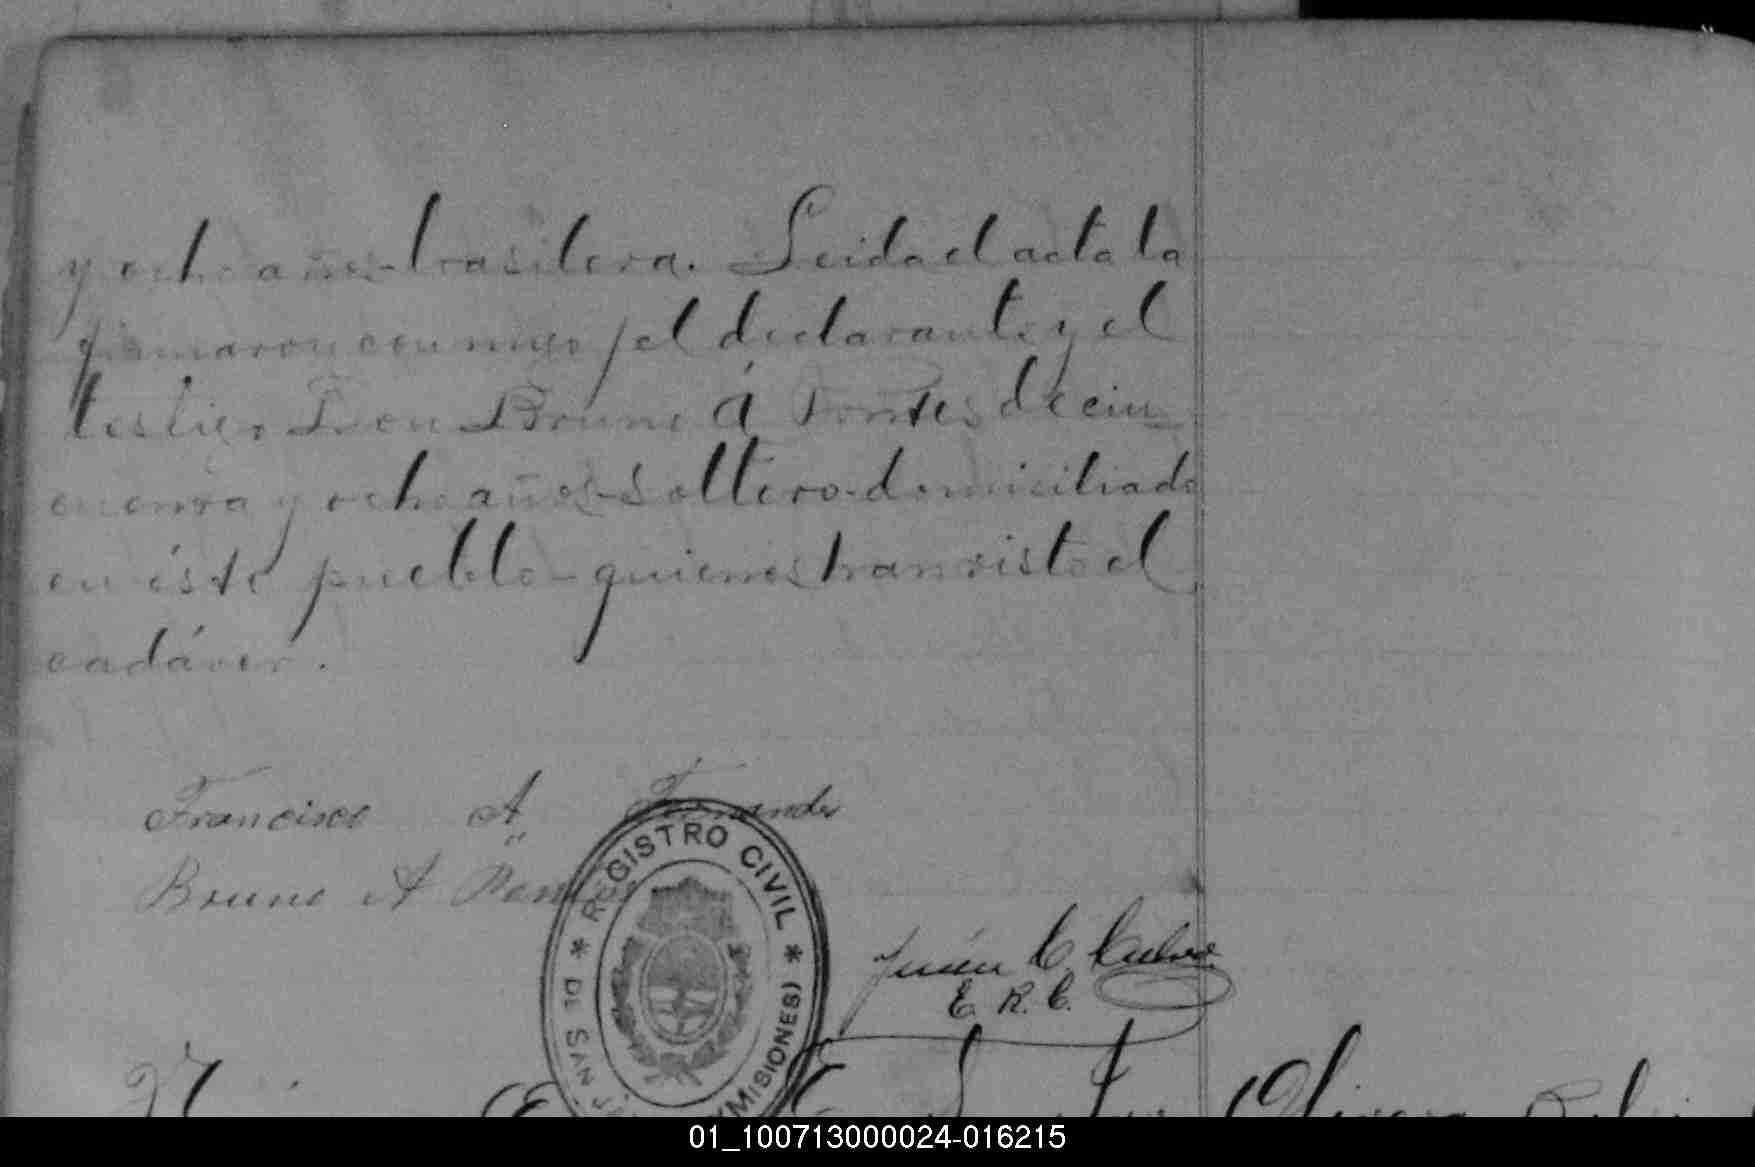 y ocho años-brasilera. Leida el acta la
firmaron conmigo, el declarante y el
testigo Don Bruno A Fontes de cin
cuenta y ocho años-soltero-domiciliado
en éste pueblo-quienes han visto el
cadáver.
Francisco A Fernandes
Bruno A
REGISTRO CIVIL
DE SAN (MISIONES)
E. R. C.
01_100713000024-016215